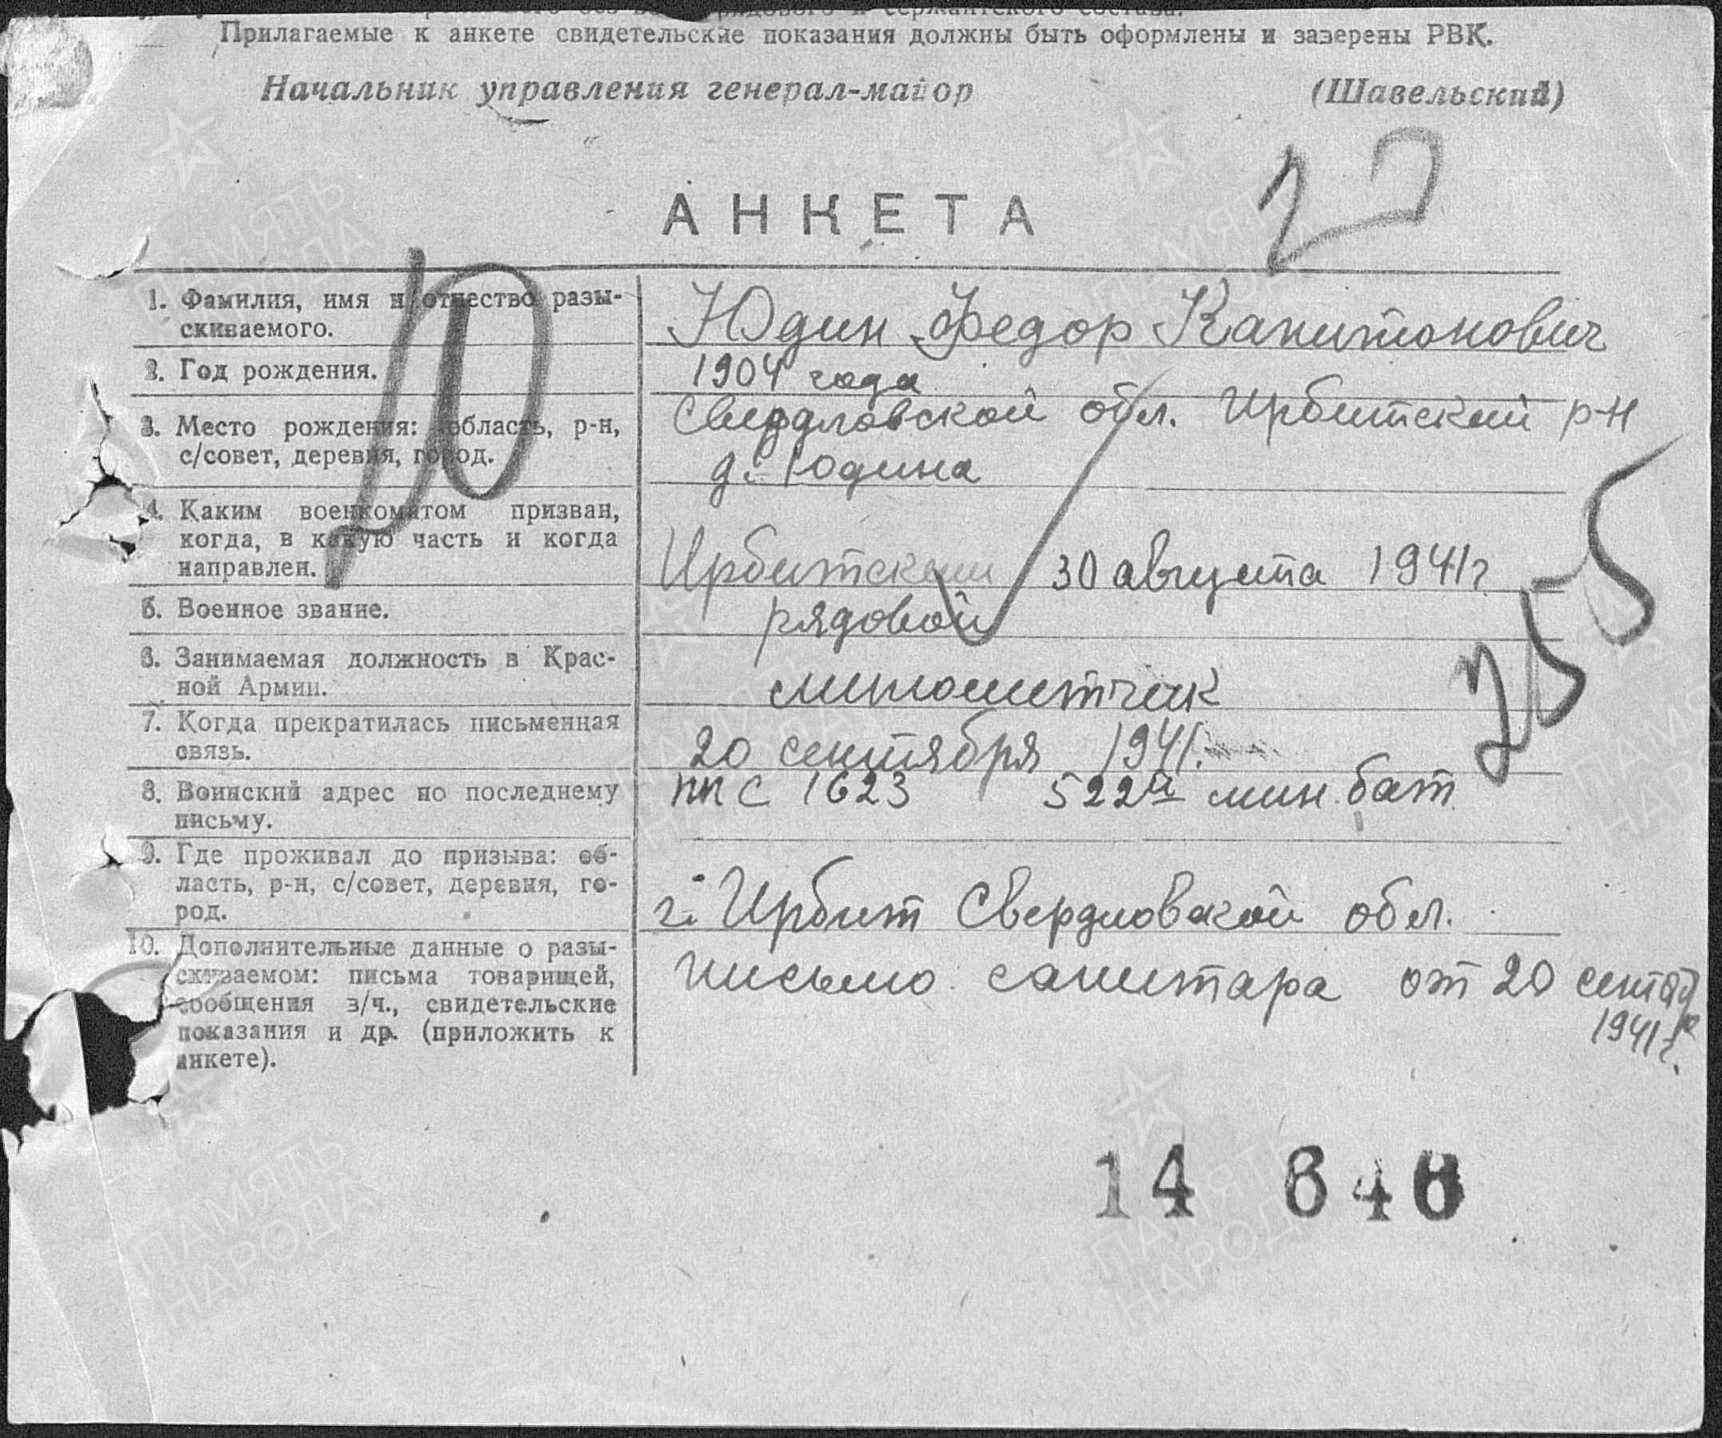 рядового и сержантского состава.
Прилагаемые к анкете свидетельские показания должны быть оформлены и заверены РВК.
Начальник управления генерал-майор (Шавельский)
АНКЕТА
1. Фамилия, имя и отчество разы-
скиваемого.
Юдин Федор Капитонович
2. Год рождения.
1904 года
3. Место рождения: область, р-н,
с/совет, деревня, город.
Свердловской обл. Ирбитский р-н
д. Юдина
4. Каким военкоматом призван,
когда, в какую часть и когда
направлен.
Ирбитским 30 августа 1941г
5. Военное звание.
рядовой
6. Занимаемая должность в Крас-
ной Армии.
минометчик
7. Когда прекратилась письменная
связь.
20 сентября 1941г.
8. Воинский адрес по последнему
письму.
ппс 1623 522й мин. бат
9. Где проживал до призыва: об-
ласть, р-н, с/совет, деревня, го-
род.
г. Ирбит Свердловской обл.
10. Дополнительные данные о разы-
скиваемом: письма товарищей,
сообщения з/ч., свидетельские
показания и др. (приложить к
анкете).
письмо санитара от 20 сентяб
1941г.
14 646
ПАМЯТЬ
НАРОДА